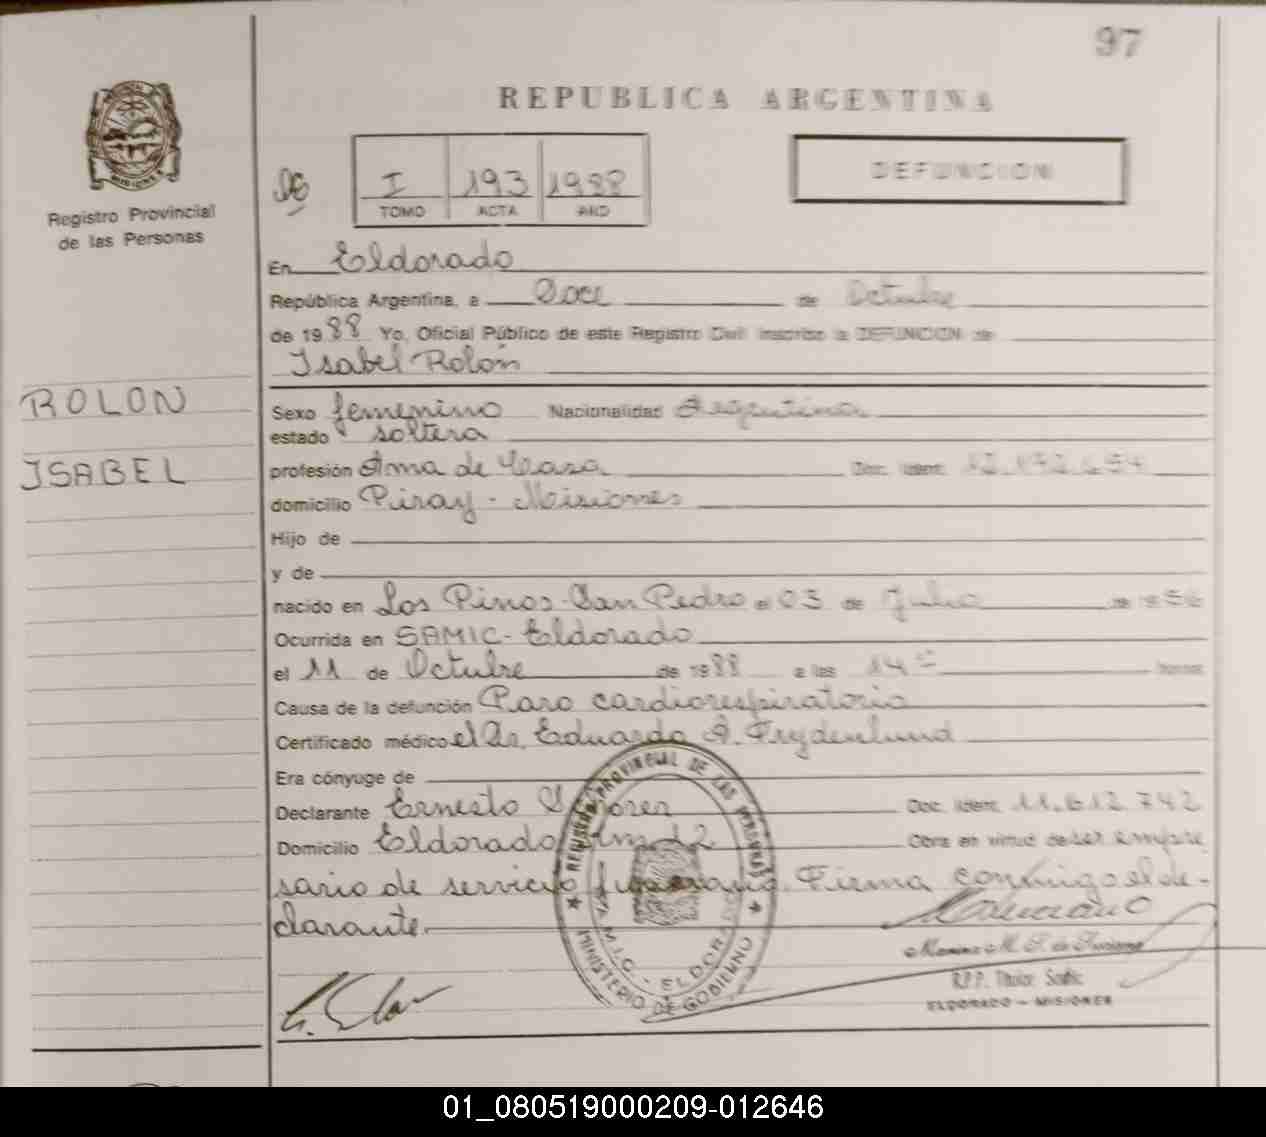 97
REPUBLICA ARGENTINA
DEFUNCION
I 193 1988
TOMO ACTA AÑO
Registro Provincial
de las Personas
En Eldorado
República Argentina, a Doce de Octubre
de 1988 Yo, Oficial Público de este Registro Civil inscribo la DEFUNCION de
Isabel Rolón
ROLON
ISABEL
Sexo femenino Nacionalidad Argentina
estado soltera
profesión Ama de Casa Doc. Ident.
domicilio Piray - Misiones
Hijo de
y de
nacido en Los Pinos - San Pedro el 03 de Julio de 1956
Ocurrida en SAMIC - Eldorado
el 11 de Octubre de 1988 a las 14 horas
Causa de la defunción Paro cardiorespiratorio
Certificado médico el Dr. Eduardo A. Frydenlund
Era cónyuge de
Declarante Ernesto Doc. Ident. 11.612.742
Domicilio Eldorado Km 12 Obra en virtud de ser empre
sario de servicio funerario. Firma conmigo el de-
clarante.
REGISTRO PROVINCIAL DE LAS PERSONAS
S.A.M.I.C. - ELDORADO
MINISTERIO DE GOBIERNO
R.P.P. Titular Samic
ELDORADO - MISIONES
01_080519000209-012646